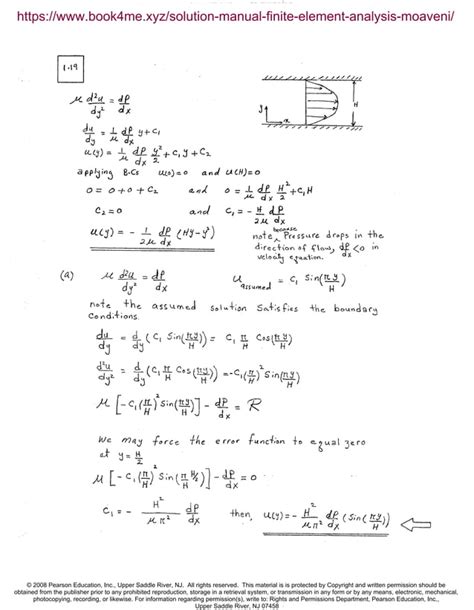 https://www.book4me.xyz/solution-manual-finite-element-analysis-moaveni/
1.19
μ d²u/dy² = dp/dx
du/dy = 1/μ dp/dx y + C₁
u(y) = 1/μ dp/dx y²/2 + C₁y + C₂
y
x
H
applying B.Cs u(0)=0 and u(H)=0
0 = 0 + 0 + C₂ and 0 = 1/μ dp/dx H²/2 + C₁H
C₂ = 0 and C₁ = - H/2μ dp/dx
u(y) = - 1/2μ dp/dx (Hy - y²)
note, because Pressure drops in the
direction of flow, dp/dx < 0 in
velocity equation.
(a) μ d²u/dy² = dp/dx u assumed = C₁ Sin(πy/H)
note the assumed solution satisfies the boundary
conditions.
du/dy = d/dy (C₁ Sin(πy/H)) = C₁ π/H Cos(πy/H)
d²u/dy² = d/dy (C₁ π/H Cos(πy/H)) = -C₁(π/H)² Sin(πy/H)
μ [-C₁(π/H)² Sin(πy/H)] - dp/dx = R
We may force the error function to equal zero
at y = H/2
μ [-C₁(π/H)² Sin(π/H H/2)] - dp/dx = 0
C₁ = - H²/μπ² dp/dx then, u(y) = - H²/μπ² dp/dx (Sin(πy/H))
© 2008 Pearson Education, Inc., Upper Saddle River, NJ. All rights reserved. This material is protected by Copyright and written permission should be
obtained from the publisher prior to any prohibited reproduction, storage in a retrieval system, or transmission in any form or by any means, electronic, mechanical,
photocopying, recording, or likewise. For information regarding permission(s), write to: Rights and Permissions Department, Pearson Education, Inc.,
Upper Saddle River, NJ 07458